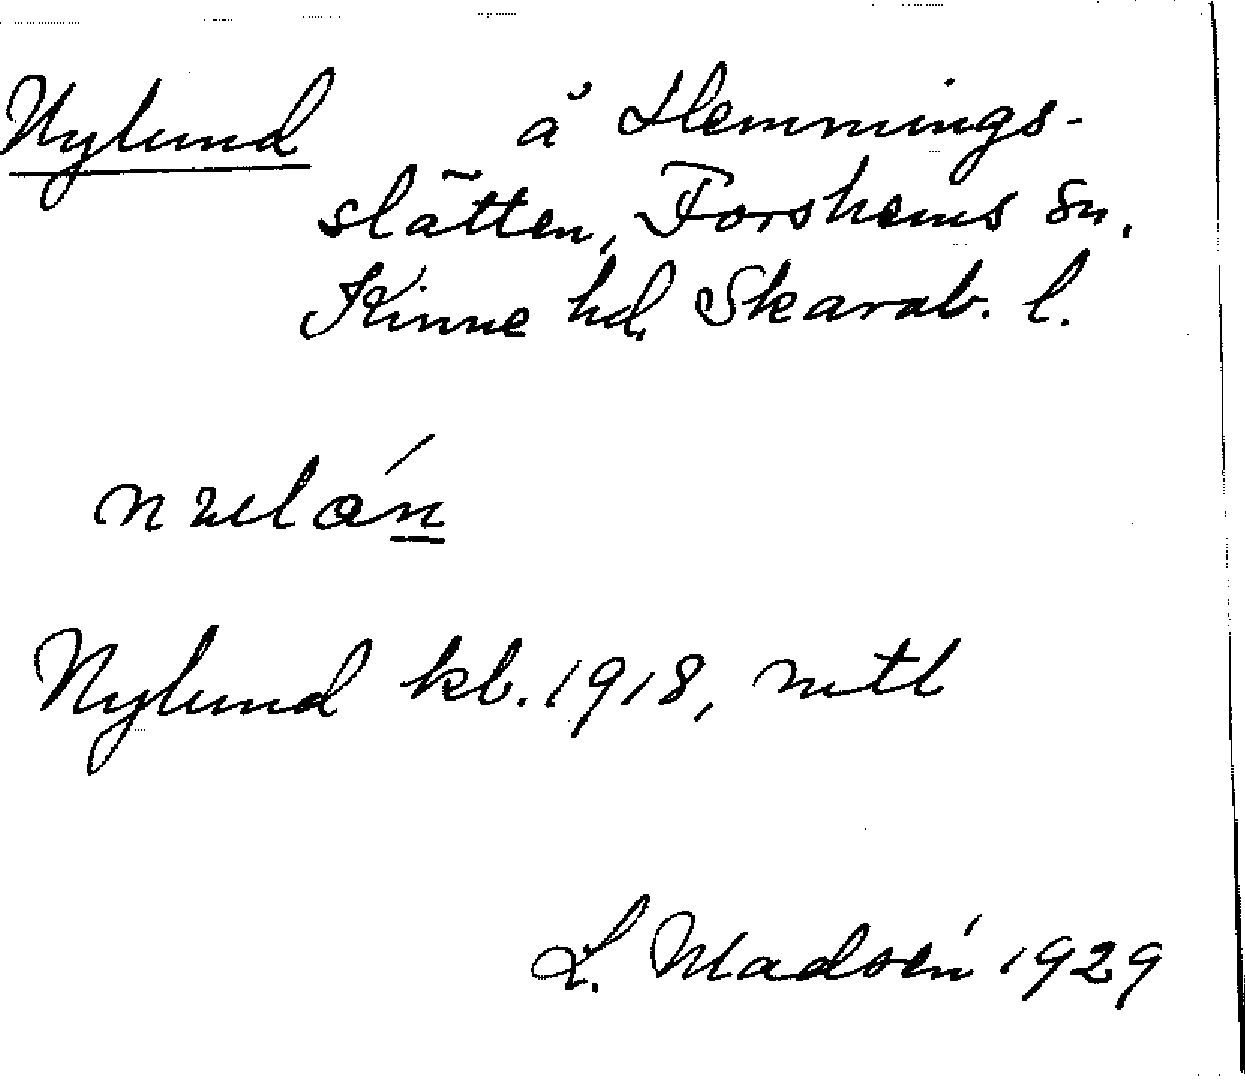 Nylund å Hemmings-
slätten, Forshems sn.
Kinne hd. Skarab. l.
Nylund kb. 1918, mtl
L. Madsén 1929